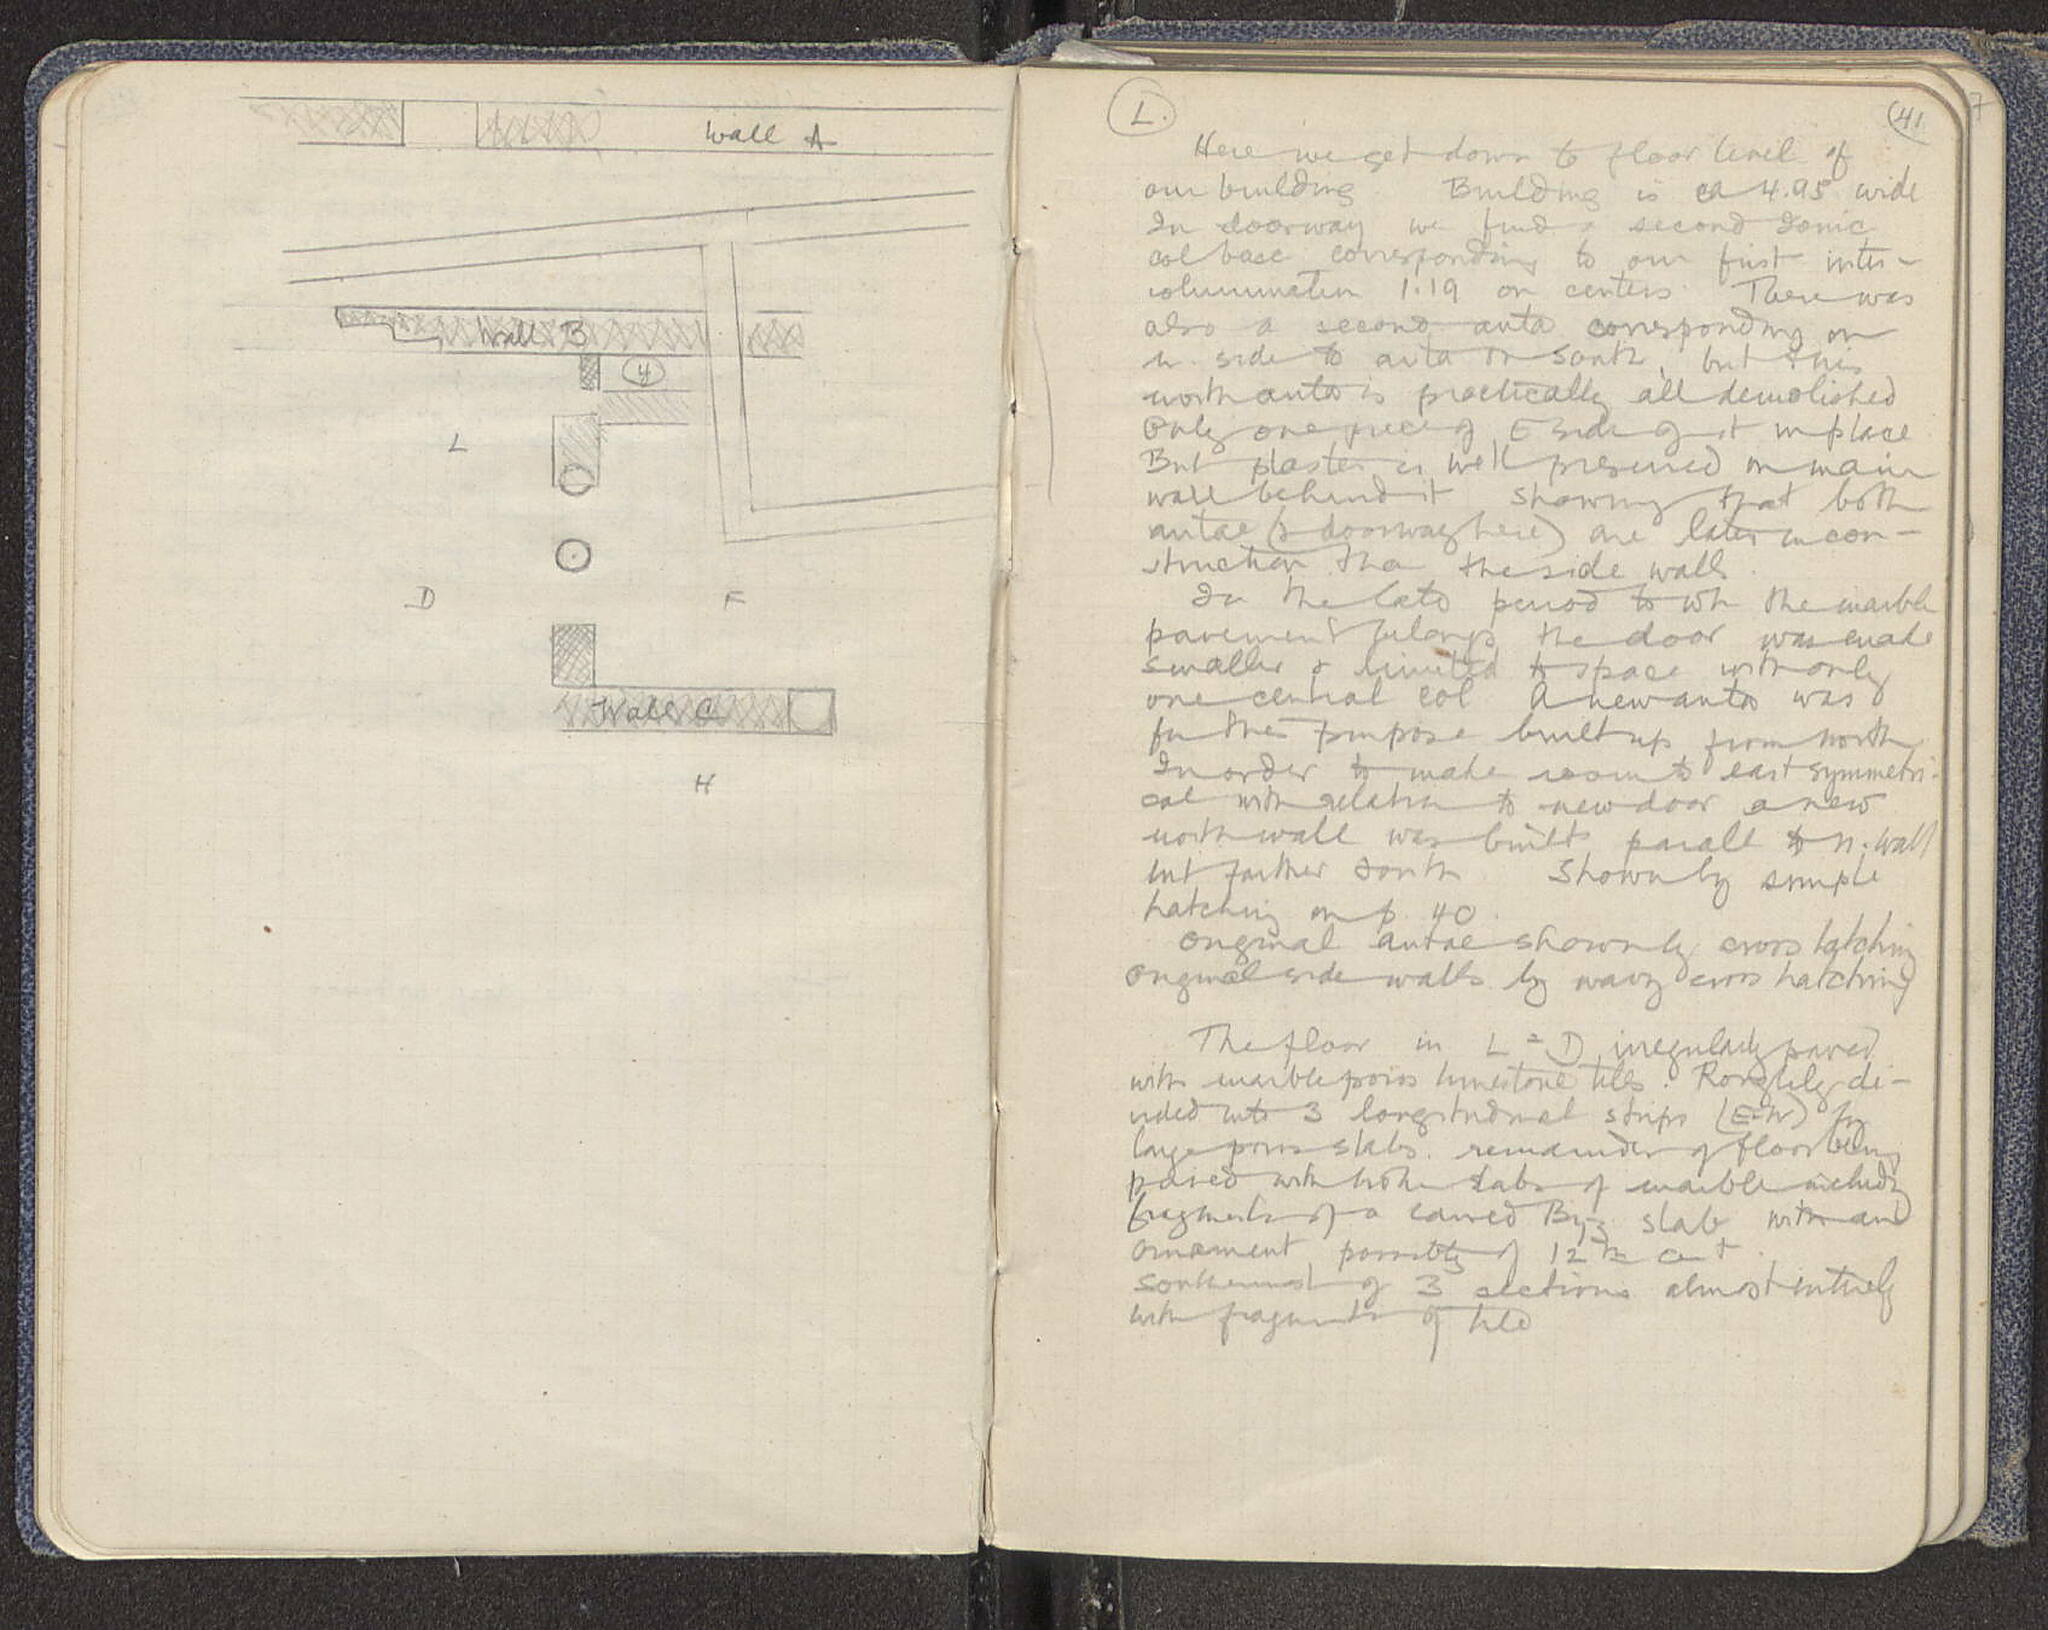 Wall A
Wall B
y
L
D
F
Wall C
H
L.
41
Here we get down to floor level of
our building. Building is ca 4.95 wide
In doorway we find a second Ionic
col base corresponding to our first inter-
columniation 1.19 on centers. There was
also a second anta corresponding on
n. side to anta on south, but this
north anta is practically all demolished
Only one piece of E side of it in place
But plaster is well preserved on main
wall behind it showing that both
antae (& doorway here) are later in con-
struction tha the side walls.
In the late period to wh the marble
pavement belongs the door was made
smaller & limited to space with only
one central col A new anta was
for this purpose built up from north
In order to make room to east symmetri-
cal with relation to new door a new
north wall was built parall to n. wall
but farther south Shown by simple
hatching on p. 40.
Original antae shown by cross hatching
Original side walls by wavy cross hatching
The floor in L = D irregularly paved
with marble poros limestone tiles. Roughly di-
vided into 3 longitudinal strips (E-W) by
large poros slabs. remainder of floor being
paved with broken slabs of marble including
fragments of a carved Byz slab with
ornament possibly of 12th cent.
Southernmost of 3 sections almost entirely
with fragments of tile